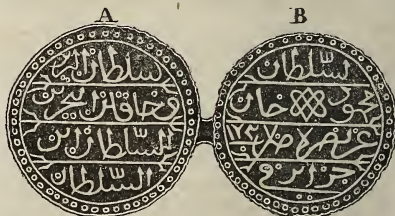 A
سلطان البرين
وخاقان البحرين
السلطان ابن
السلطان
B
سلطان
محمود خان
عز نصره ضرب
في جزاير